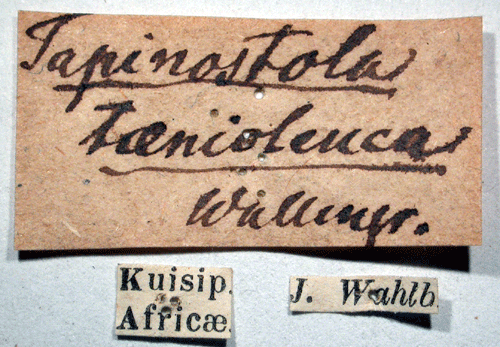 Tapinostola
tænioleuca
Wallengr.
Kuisip.
Africæ.
J. Wahlb.